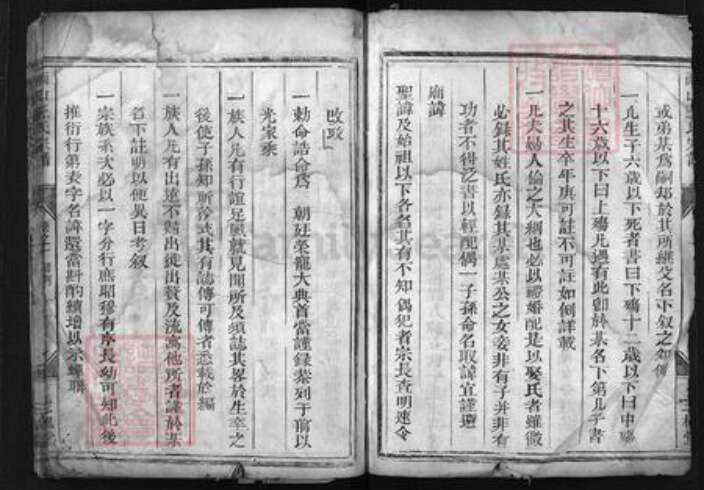 或弟某爲嗣却於其所繼父名下叙之如例
一凡生子六歲以下死者書曰下殤十二歲以下曰中殤
十六歲以下曰上殤凡遇有此卽於某名下第几子書
之其生卒年庚可註不可註如例詳載
一凡夫婦人倫之大綱也必以禮婚配是以娶氏者雖微
必錄其姓氏亦錄其某處某公之女妾非有子并非有
功者不得泛書以輕配偶一子孫命名取諱宜謹避
廟諱
聖諱及始祖以下各名其有不知偶犯者宗長查明速令
改政
一勅命誥命爲 朝廷榮寵大典首當謹錄彙列于前以
光家乘
一族人凡有行誼足風就見聞所及須誌其畧於生卒之
後使子孫知所矜式其有誌傳可傳者悉載於編
一族人凡有出遠不歸出徙出贅及流寓他所者謹於某
名下註明以便異日考叙
一宗族系大必以一字分行庶昭穆有序長幼可知此後
推衍行第表字名諱還當斟酌續增以示蟬聯